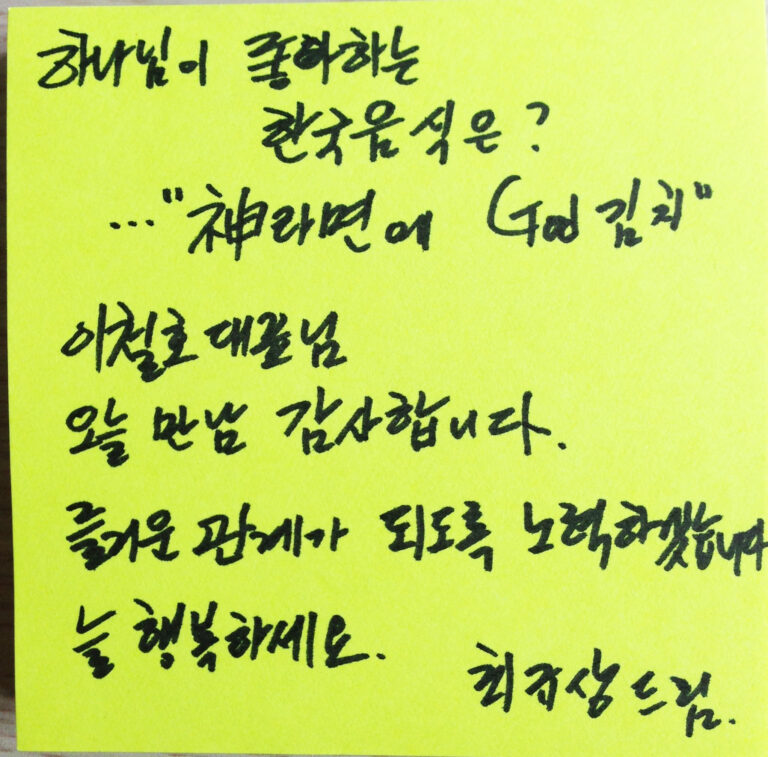 하나님이 좋아하는
한국음식은?
..."神라면에 God 김치"
이철호 대표님
오늘 만남 감사합니다.
즐거운 관계가 되도록 노력하겠습니다
늘 행복하세요.
최규상 드림.